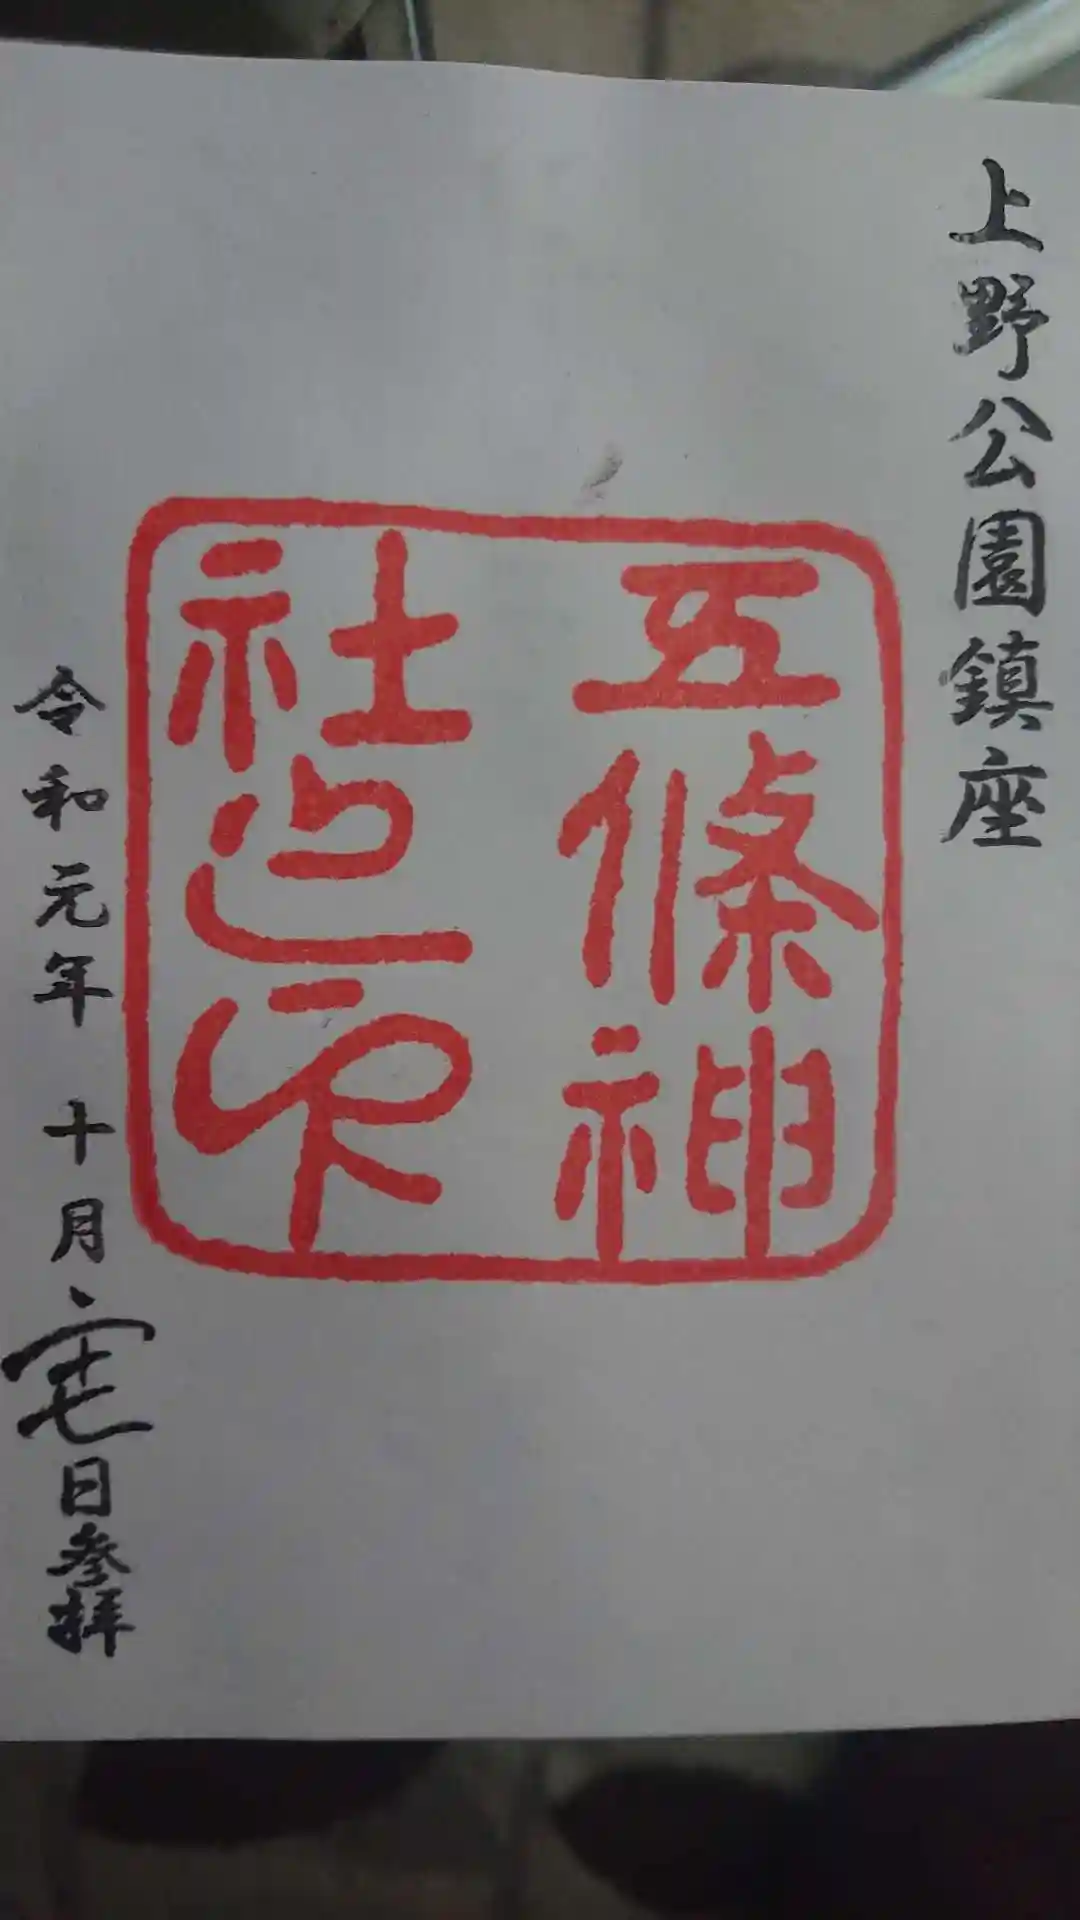 上野公園鎮座
五條神
社
令和元年 十月二十七日参拝